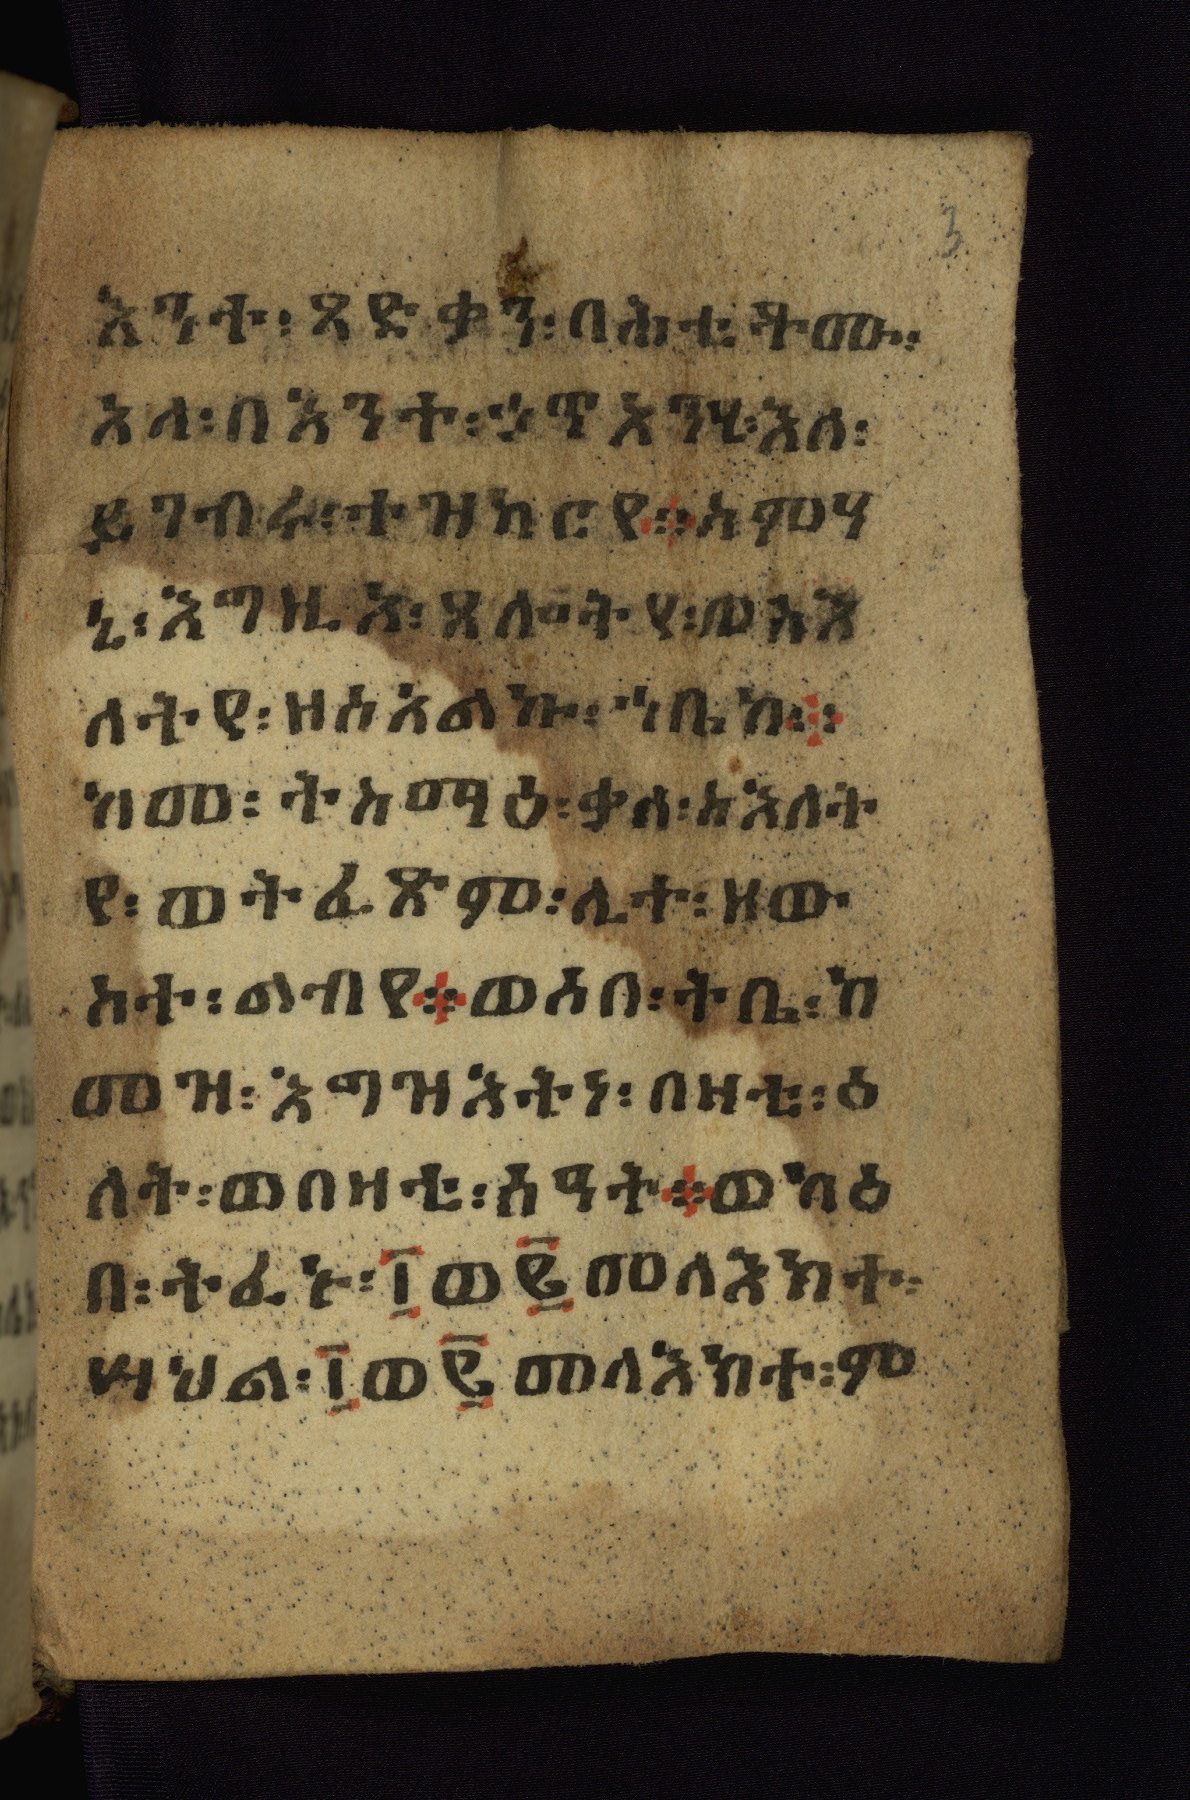 3
እንተ፡ ጻድቃን፡ በሕቲቶሙ፡
አላ፡ በእንተ፡ ኃጥአንሂ፡ እለ፡
ይገብሩ፡ ተዝካርየ። አምሃ
ኒ፡ እግዚእ፡ ጸሎትየ፡ ወስእ
ለትየ፡ ዘሰአልኩ፡ ኀቤከ።
ከመ፡ ትስማዕ፡ ቃለ፡ ስእለት
የ፡ ወትፈጽም፡ ሊተ፡ ዘው
እተ፡ ልብየ። ወሶበ፡ ትቤ፡ ከ
መዝ፡ እግዝእትነ፡ በዛቲ፡ ዕ
ለት፡ ወበዛቲ፡ ሰዓት። ወካዕ
በ፡ ትፌኑ፡ ፲ወ፪መላእክተ፡
ሣህል፡ ፲ወ፪መላእክተ፡ ም